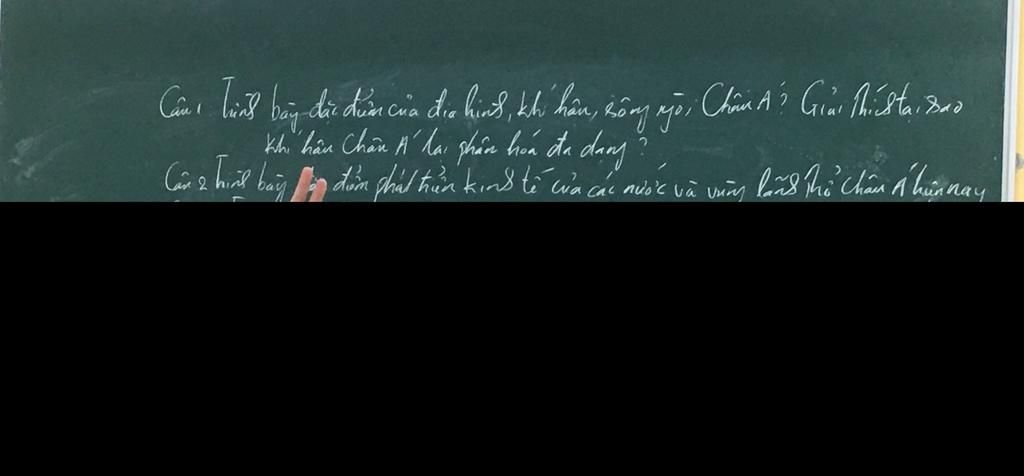 Câu 1 Trình bày đặc điểm của địa hình, khí hậu, sông ngòi, Châu Á? Giải thích tại sao
khí hậu Châu Á lại phân hóa đa dạng?
Câu 2 Trình bày điểm phát triển kinh tế của các nước và vùng lãnh thổ Châu Á hiện nay